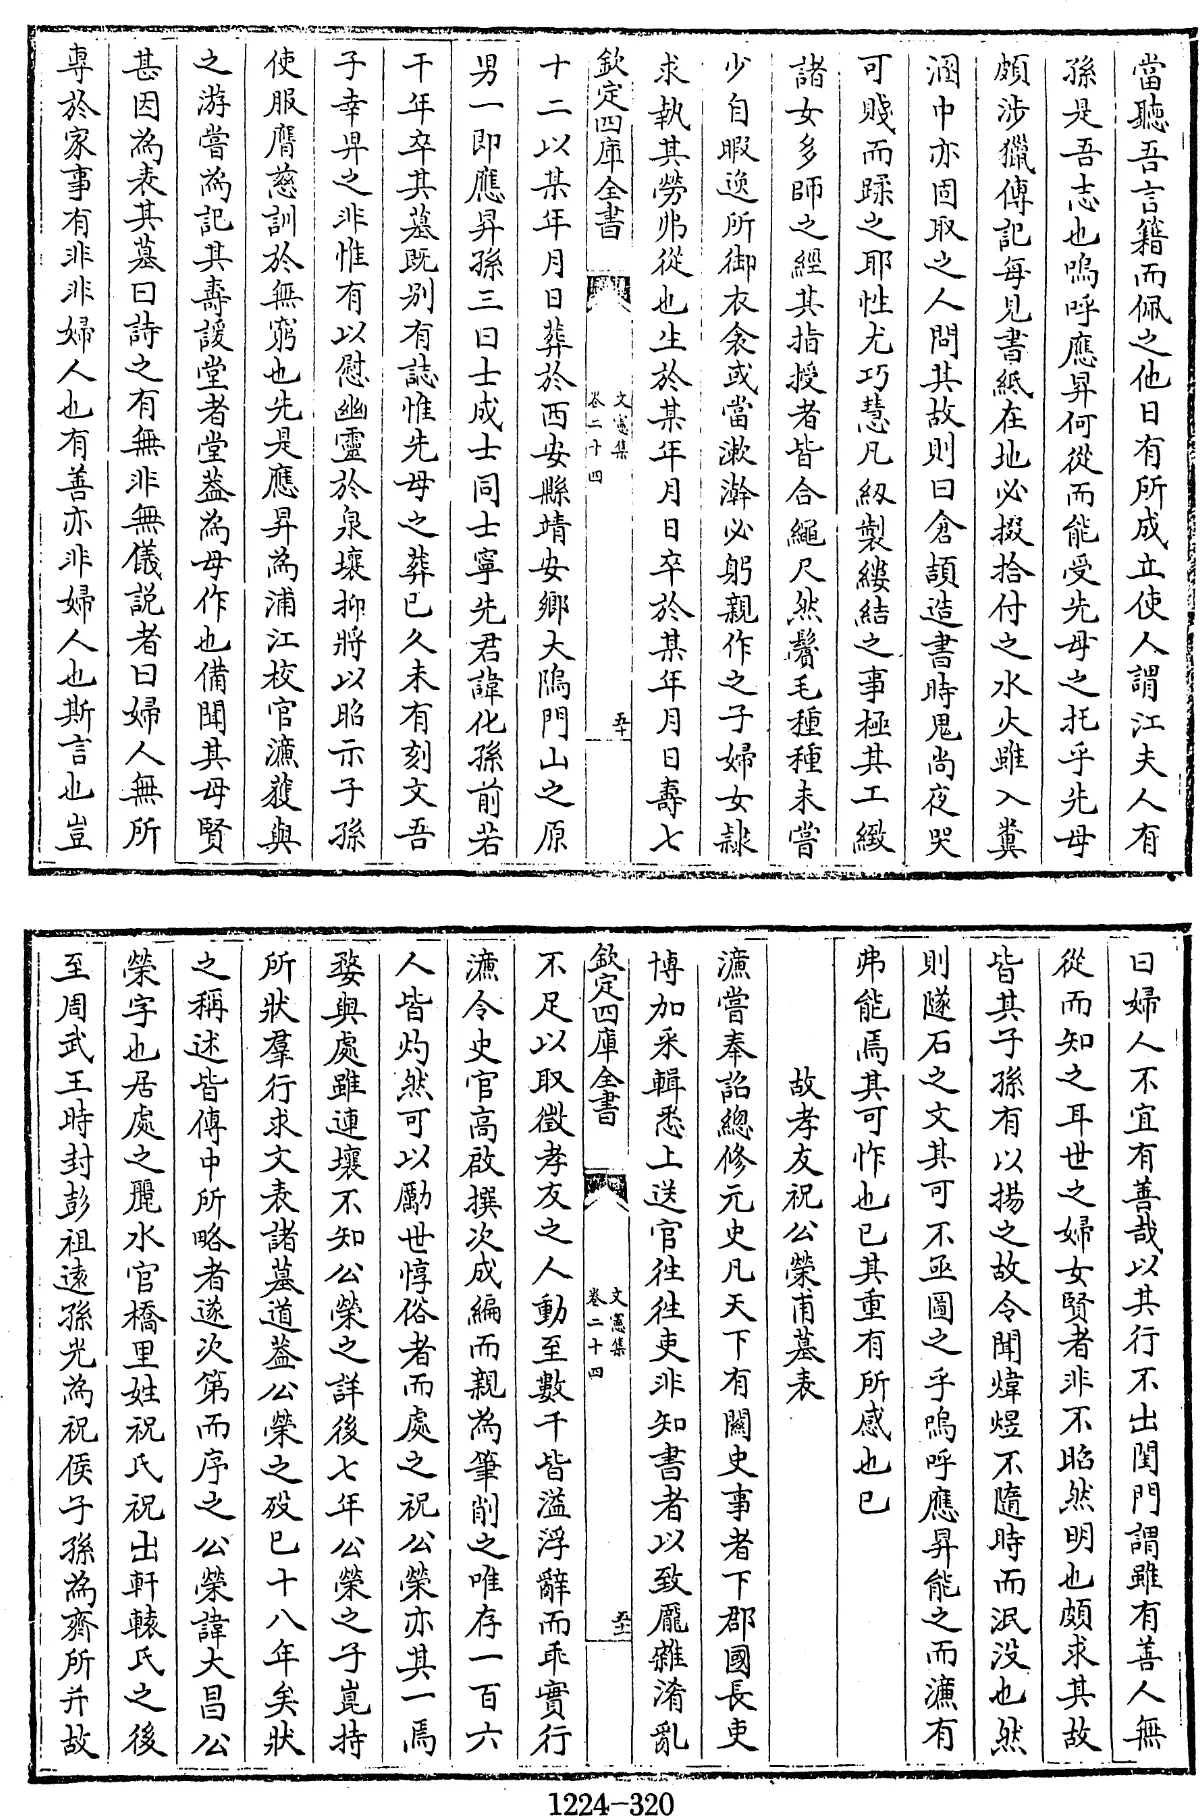 當聽吾言籍而佩之他日有所成立使人謂江夫人有
孫是吾志也嗚呼應昇何從而能受先母之托乎先母
頗涉獵傳記每見書紙在地必掇拾付之水火雖入糞
溷中亦固取之人問其故則曰倉頡造書時鬼尚夜哭
可賤而蹂之耶性尤巧慧凡紉製縷結之事極其工緻
諸女多師之經其指授者皆合繩尺然鬢毛種種未嘗
少自暇逸所御衣衾或當漱澣必躬親作之子婦女隷
求執其勞弗從也生於某年月日卒於某年月日壽七
欽定四庫全書
文憲集
卷二十四
五十
十二以某年月日葬於西安縣靖安鄉大隝門山之原
男一即應昇孫三曰士成士同士寧先君諱化孫前若
干年卒其墓既别有誌惟先母之葬已久未有刻文吾
子幸畀之非惟有以慰幽靈於泉壤抑將以昭示子孫
使服膺慈訓於無窮也先是應昇為浦江校官濂獲與
之游嘗為記其壽諼堂者堂葢為母作也備聞其母賢
甚因為表其墓曰詩之有無非無儀説者曰婦人無所
專於家事有非非婦人也有善亦非婦人也斯言也豈
曰婦人不宜有善哉以其行不出閨門謂雖有善人無
從而知之耳世之婦女賢者非不昭然明也頗求其故
皆其子孫有以揚之故令聞煒煜不隨時而泯没也然
則隧石之文其可不亟圖之乎嗚呼應昇能之而濂有
弗能焉其可怍也已其重有所感也已
故孝友祝公榮甫墓表
濂嘗奉詔總修元史凡天下有關史事者下郡國長吏
博加采輯悉上送官徃徃吏非知書者以致厖雜淆亂
欽定四庫全書
文憲集
卷二十四
五十一
不足以取徵孝友之人動至數千皆溢浮辭而乖實行
濂令史官高啟撰次成編而親為筆削之唯存一百六
人皆灼然可以勵世惇俗者而處之祝公榮亦其一焉
婺與處雖連壤不知公榮之詳後七年公榮之子崑持
所狀羣行求文表諸墓道葢公榮之殁已十八年矣狀
之稱述皆傳中所略者遂次第而序之公榮諱大昌公
榮字也居處之麗水官橋里姓祝氏祝出軒轅氏之後
至周武王時封彭祖遠孫光為祝侯子孫為齊所并故
1224-320